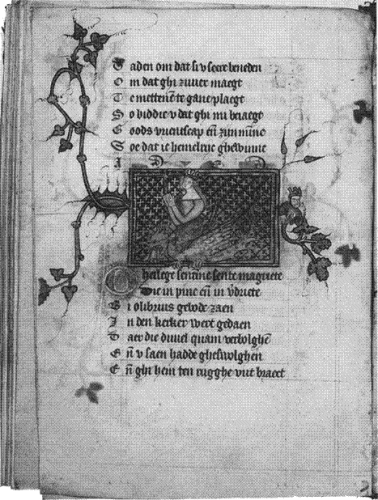 aden om dat si v seere beneden
Om dat ghi zuver maegt
Te mettenẽ te gane plaegt
So biddic v dat ghi mi beiaegt
Goods vrienscap eñ zyn mĩne
Soe dat ic hemelrike ghewinne
O heilege sentine sente magriete
Die in pine eñ in vdriete
Bi olibrius gewde zaen
In den kerker wert gedaen
Daer die duvel quam verbolghẽ
Eñ v saen hadde gheswolghen
Eñ ghi hem ten rugghe vut braect